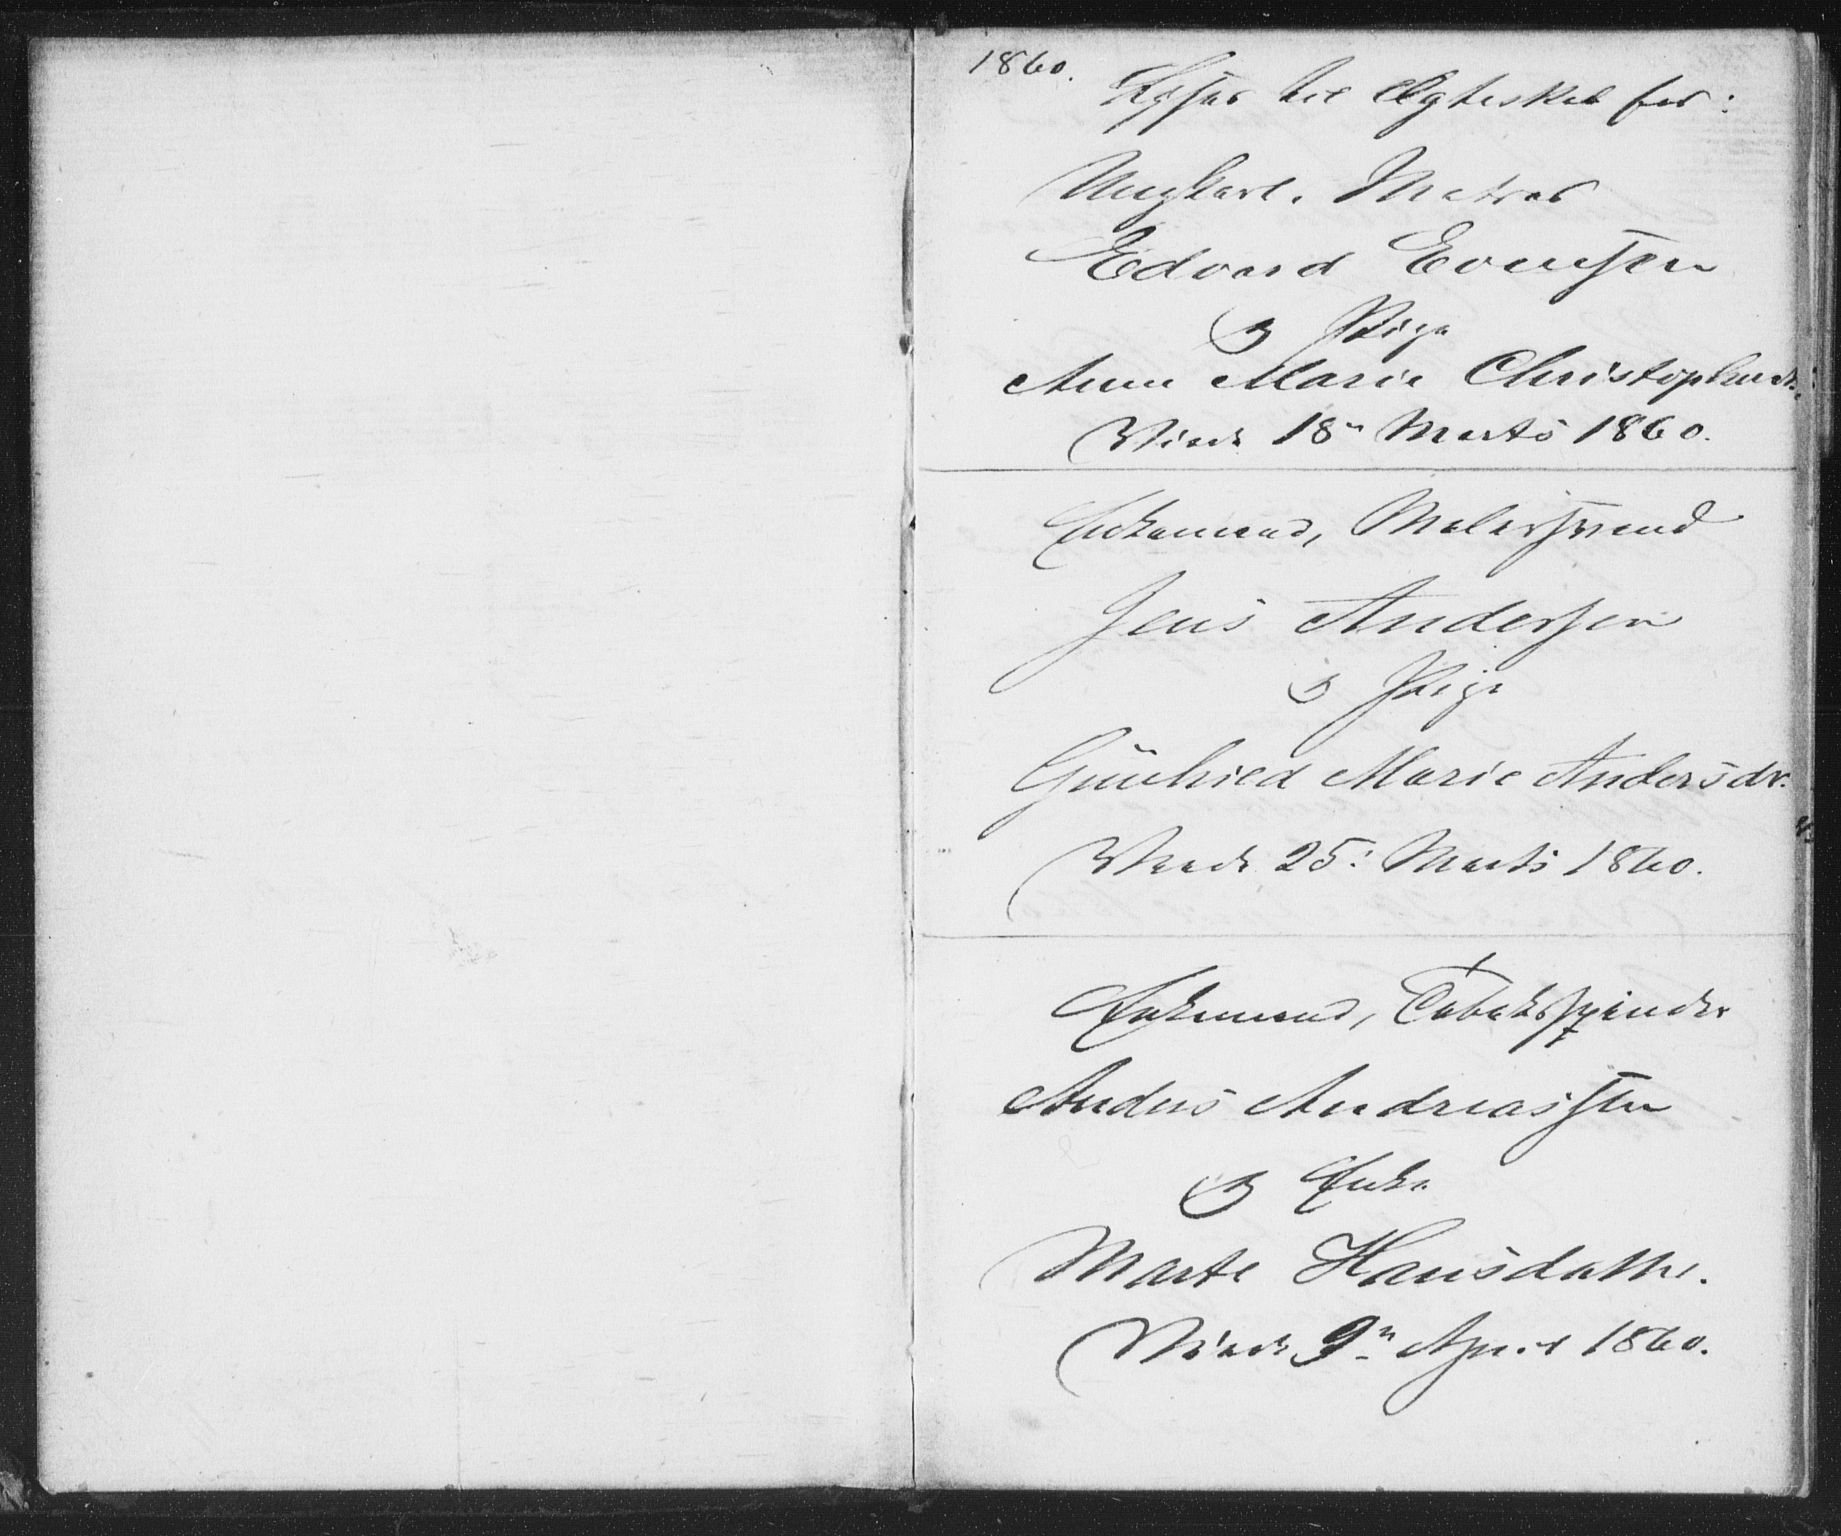 1860.
Lyses til Ægteskab for:
Ungkarl. Matros
Edvard Evensen
og Pige
Anne Marie Christophersd.
Viede 18n Marts 1860.
Enkemand, Malersvend
Jens Andersen
og Pige
Gunhild Marie Andersdr.
Viede 25: Marts 1860.
Enkemand, Tobaksspinder
Anders Andreassen
og Enke
Marte Hansdatter.
Viede 9n April 1860.